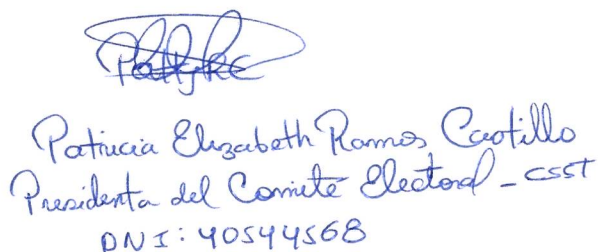 Patricia Elizabeth Ramos Castillo
Presidenta del Comité Electoral - CSST
DNI: 40544568